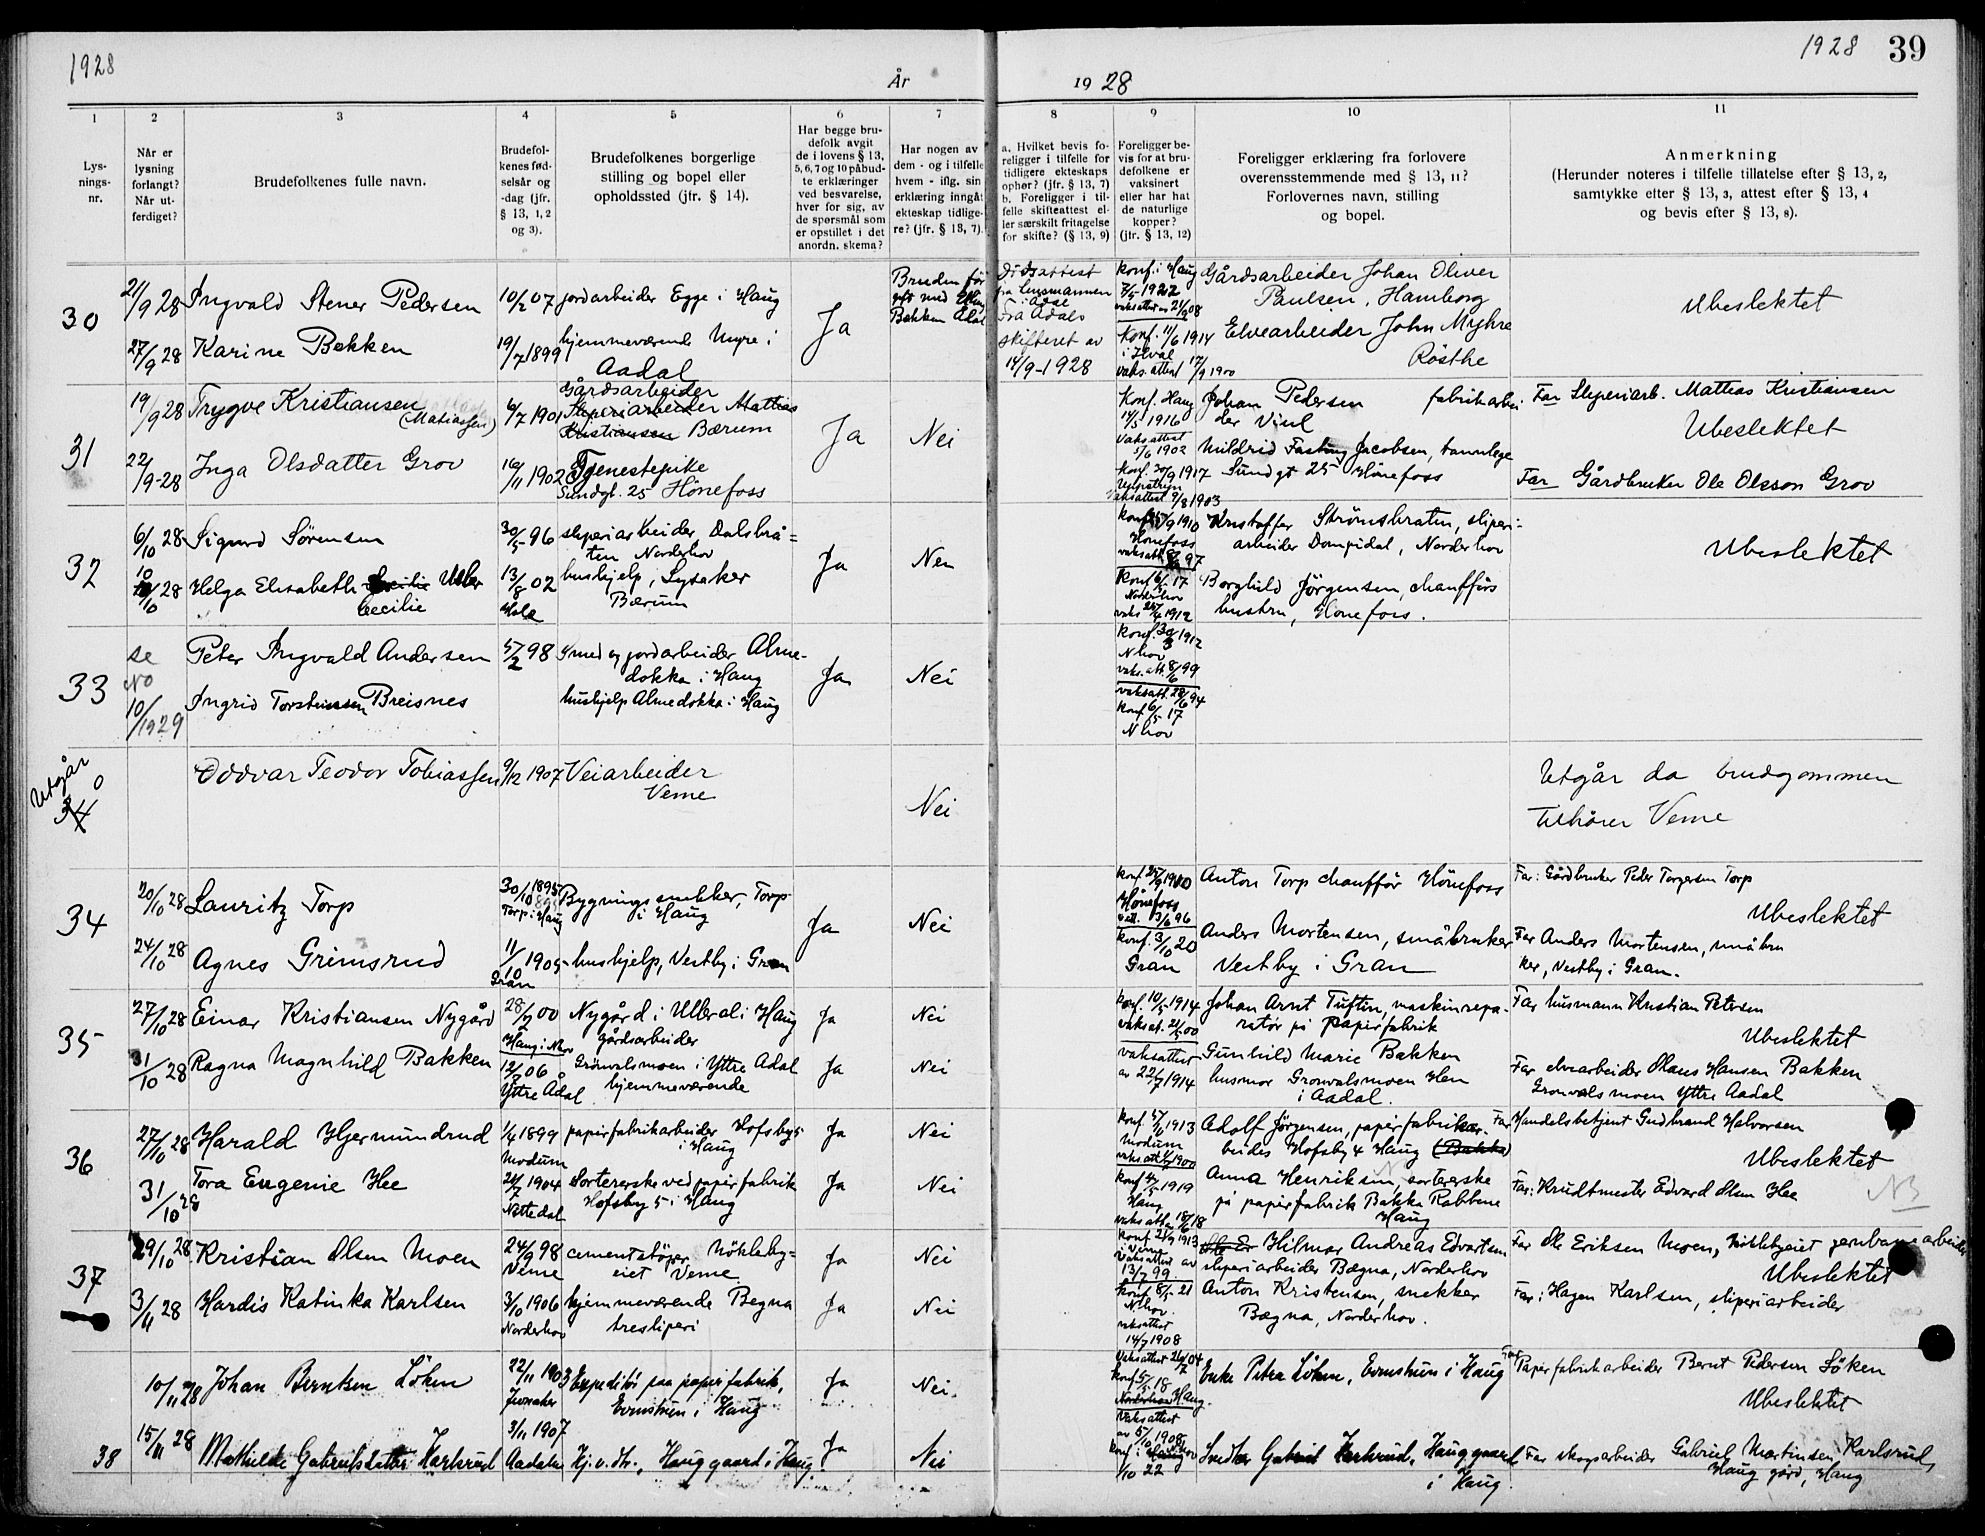 1928
År
1928
1928 39
1
Lys-
nings-
nr.
2
Når er
lysning
forlangt?
Når ut-
ferdiget?
3
Brudefolkenes fulle navn.
4
Brudefol-
kenes fød-
selsår og
-dag (jfr.
§ 13, 1, 2
og 3).
5
Brudefolkenes borgerlige
stilling og bopel eller
opholdssted (jfr. § 14).
6
Har begge bru-
defolk avgit
de i lovens § 13,
5, 6, 7 og 10 påbud-
te erklæringer
ved besvarelse,
hver for sig, av
de spørsmål som
er opstillet i det
anordn. skema?
7
Har nogen av
dem - og i tilfelle
hvem - iflg. sin
erklæring inngåt
ekteskap tidlige-
re? (jfr. § 13, 7).
8
a. Hvilket bevis fo-
religger i tilfelle for
tidligere ekteskaps
ophør? (jfr. § 13, 7)
b. Foreligger i til-
felle skifteattest el-
ler særskilt fritagelse
for skifte? (§ 13, 9)
9
Foreligger be-
vis for at bru-
defolkene er
vaksinert
eller har hat
de naturlige
kopper?
(jfr. § 13, 12)
10
Foreligger erklæring fra forlovere
overensstemmende med § 13, 11?
Forlovernes navn, stilling
og bopel.
11
Anmerkning
(Herunder noteres i tilfelle tillatelse efter § 13, 2,
samtykke efter § 13, 3, attest efter § 13, 4
og bevis efter § 13, 8).
30
21/9 28
27/9 28
Ingvald Stener Pedersen
Karine Bekken
10/2 07
19/7 1899
jordarbeider Egge i Haug
hjemmeværende Myre i
Aadal
Ja
Bruden før
gift med
Bekken Ådal
Dødsattest
fra lensmannen
i Ådal
Fra Ådals
skifteret av
14/9-1928
Konf. i Haug
7/5-1922
vaksattest 21/9 08
Konf. 11/6 1914
i Hval
vaks. attest 17/9 1900
Gårdsarbeider Johan Oliver
Paulsen, Hamborg
Elvearbeider John Myhre
Røsthe
Ubeslektet
31
19/9 28
22/9-28
Trygve Kristiansen
(Matiassen)
Inga Olsdatter Grov
6/7 1901
16/11 1902
Gårdsarbeider
Sliperiarbeider Mattias
Kristiansen Bærum
Tjenestepike
Sundgt. 25 Hönefoss
Ja
Nei
Konf. Haug
14/5 1916
Vaksattest
5/6 1902
Konf. 30/9 1917
Vaksattest 9/8 1903
Johan Pedersen fabrikarbei-
der Viul
Mildrid Fasting Jacobsen, tannlege
Sundgt 25 Hönefoss
Far Sliperiarb. Mattias Kristiansen
Ubeslektet
Far Gårdbruker Ole Olsson Grov
32
6/10 28
10/10 28
Sigurd Sørensen
Helga Elisabeth Cecilie
Cecilie
30/5-96
13/8 02
Hole
sliperiarbeider, Dalsbrå-
ten Norderhov
hushjelp, Lysaker
Bærum
Ja
Nei
Konf. 25/9 1910
Hønefoss
vaksatt. 97
Konf 6/5 17
Norderhov
vaks 1912
Kristoffer Strömsbraten, sliperi-
arbeider Dompidal, Norderhov
Borghild Jörgensen, chaufførs
hustru, Hönefoss.
Ubeslektet
33
se
No
10/1929
Peter Ingvald Andersen
Ingrid Torsteinsen Breisnes
5/2 98
Smed og jordarbeider Alme-
dokka i Haug
hushjelp Almedokka i Haug
Ja
Nei
Konf. 30/3 1912
N hov
vaks. att. 8/6 99
vaksatt. 28/6 94
Konf 6/5 17
N hov
Utgår
34
Oddvar Teodor Tobiassen
9/12 1907
Veiarbeider
Veme
Nei
Utgår da brudgommen
tilhører Veme
34
20/10 28
24/10 28
Lauritz Torp
Agnes Grimsrud
30/10 1895
Torp i Haug
11/10 1905
Gran
Bygningssnekker, Torp
i Haug
hushjelp, Vestby i Gran
Ja
Nei
Konf 25/9 1910
Hønefoss
vakt. 13/6 96
Konf. 3/10 20
Gran
Anton Torp chauffør Hönefoss
Anders Mortensen, småbruker
Vestby i Gran
Far: Gårdbruker Peder Torgersen Torp
Ubeslektet
Far Anders Mortensen, småbru
ker, Vestby i Gran.
35
27/10 28
31/10 28
Einar Kristiansen Nygård
Ragna Magnhild Bakken
28/2 00
Haug i Nhov
12/8 06
Yttre Ådal
Nygård i Ulleral i Haug
gårdsarbeider
Grönvolsmoen i Yttre Adal
hjemmeværende
Ja
Ja
Nei
Nei
Konf. 10/5-1914
vaksat. 21/5 00
vaksattest
av 22/7 1914
Johan Arnt Tuften, maskinrepa-
ratør på papirfabrik
Gunhild Marie Bakken
husmor Gronvalsmoen Hen
i Aadal.
Far husmann Kristian Petersen
Ubeslektet
Far elvearbeider Olaus Hansen Bakken
Gronvolsmoen Yttre Aadal
36
27/10 28
31/10 28
Harald Hjermundrud
Tora Eugenie Hee
1/4 1899
Modum
24/7 1904
Nittedal
papirfabrikarbeider Hofsby 5
i Haug
Sortererske ved papirfabrik
Hofsby 5 i Haug
Ja
Ja
Nei
Nei
Konf. 1913
Modum
vaksatt. 1900
Konf 1919
Haug
vaksatt. 18/6 18
Adolf Jörgensen, papirfabrikar-
beider Hofsby 4 Haug (Bakka)
Anna Henriksen, sortererske
på papirfabrik Bakka Rabbene
Haug
Far Handelsbetjent Gudbrand Halvorsen
Ubeslektet
Far: Krudtmester Edvard Olsen Hee
NB
37
29/10 28
3/11 28
Kristian Olsen Moen
Hardis Katinka Karlsen
24/9 98
Veme
3/10 1906
Norderhov
cementstøper Nökleby-
eiet Veme
hjemmeværende Begna
tresliperi
Ja
Ja
Nei
Nei
Konf 21/9 1913
Veme
Vaksattest av
13/7 99
Konf 8/5-21
N hov.
vaksattest
14/7 1908
Hilmar Andreas Edvartsen
sliperiarbeider Bægna, Norderhov
Anton Kristensen, snekker
Bægna, Norderhov.
Far Ole Eriksen Moen, Nöklebyeiet jernbanearbeider
Ubeslektet
Far: Hagen Karlsen, sliperiarbeider
38
10/11 28
15/11 28
Johan Berntsen Löken
Mathilde Gabrielsdatter Karlsrud
22/11 1903
Jevnaker
3/11 1907
Aadalen
Expeditör paa papirfabrik,
i Haug
Hj. v. dtr., Hauggaard i Haug
Ja
Ja
Nei
Nei
Vaksattest 26/7 04
Konf 5/5 18
Norderhov Haug.
Vaksattest
av 5/10 1908
Konf. i
1/10 22
Enke Petra Löken, i Haug
Gabriel Karlsrud, Hauggaard
i Haug.
Far Papirfabrikarbeider Bernt Pedersen Löken
Ubeslektet
Far skogsarbeider Gabriel Martinsen Karlsrud,
Haug gård, Haug